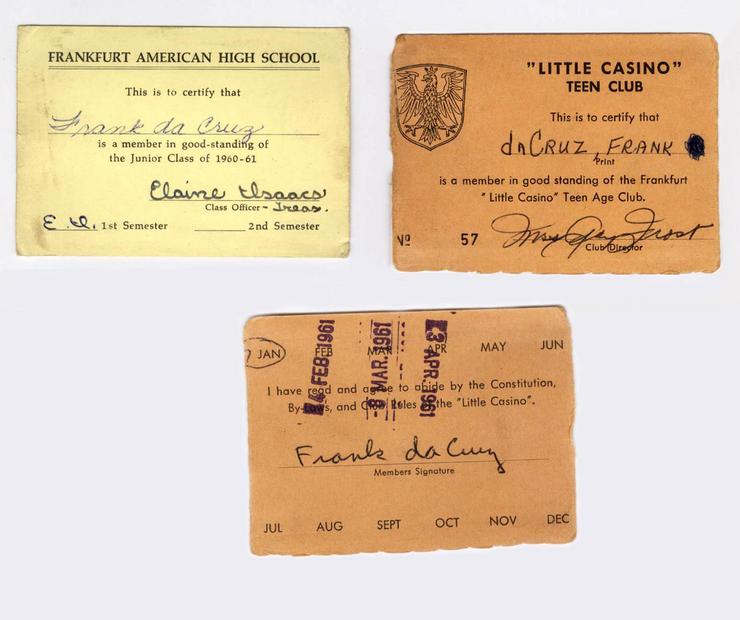 FRANKFURT AMERICAN HIGH SCHOOL
This is to certify that
Frank da Cruz
is a member in good-standing of
the Junior Class of 1960-61
Elaine Isaacs
Class Officer - Treas.
E. I. 1st Semester 2nd Semester
"LITTLE CASINO"
TEEN CLUB
This is to certify that
daCRUZ, FRANK
Print
is a member in good standing of the Frankfurt
"Little Casino" Teen Age Club.
Nº 57 Frost
Club Director
JAN FEB MAR APR MAY JUN
FEB 1961
8 MAR. 1961
3 APR 1961
I have read and agree to abide by the Constitution,
By-Laws, and Club Rules of the "Little Casino".
Frank da Cruz
Members Signature
JUL AUG SEPT OCT NOV DEC